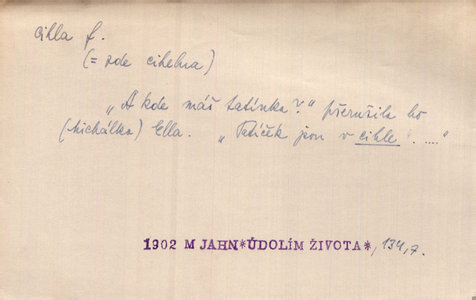 cihla f.
(= zde cihelna)
„A kde máš tatínka?" přerušila ho
(Michálka) Ella. „Tatíček jsou v cihle! ...."
1902 M JAHN*ÚDOLÍM ŽIVOTA*, 134,7.